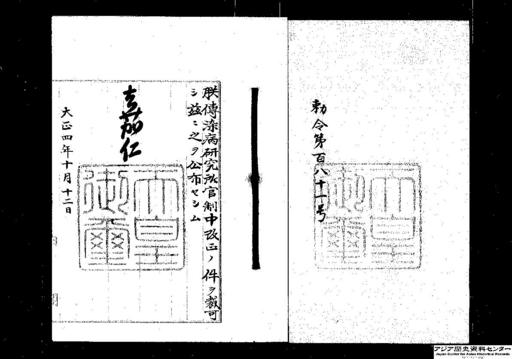 勅令第百八十一号
朕傳染病研究所官制中改正ノ件ヲ裁可
シ茲ニ之ヲ公布セシム
嘉仁
大正四年十月十二日
天皇御璽
アジア歴史資料センター
Japan Center for Asian Historical Records